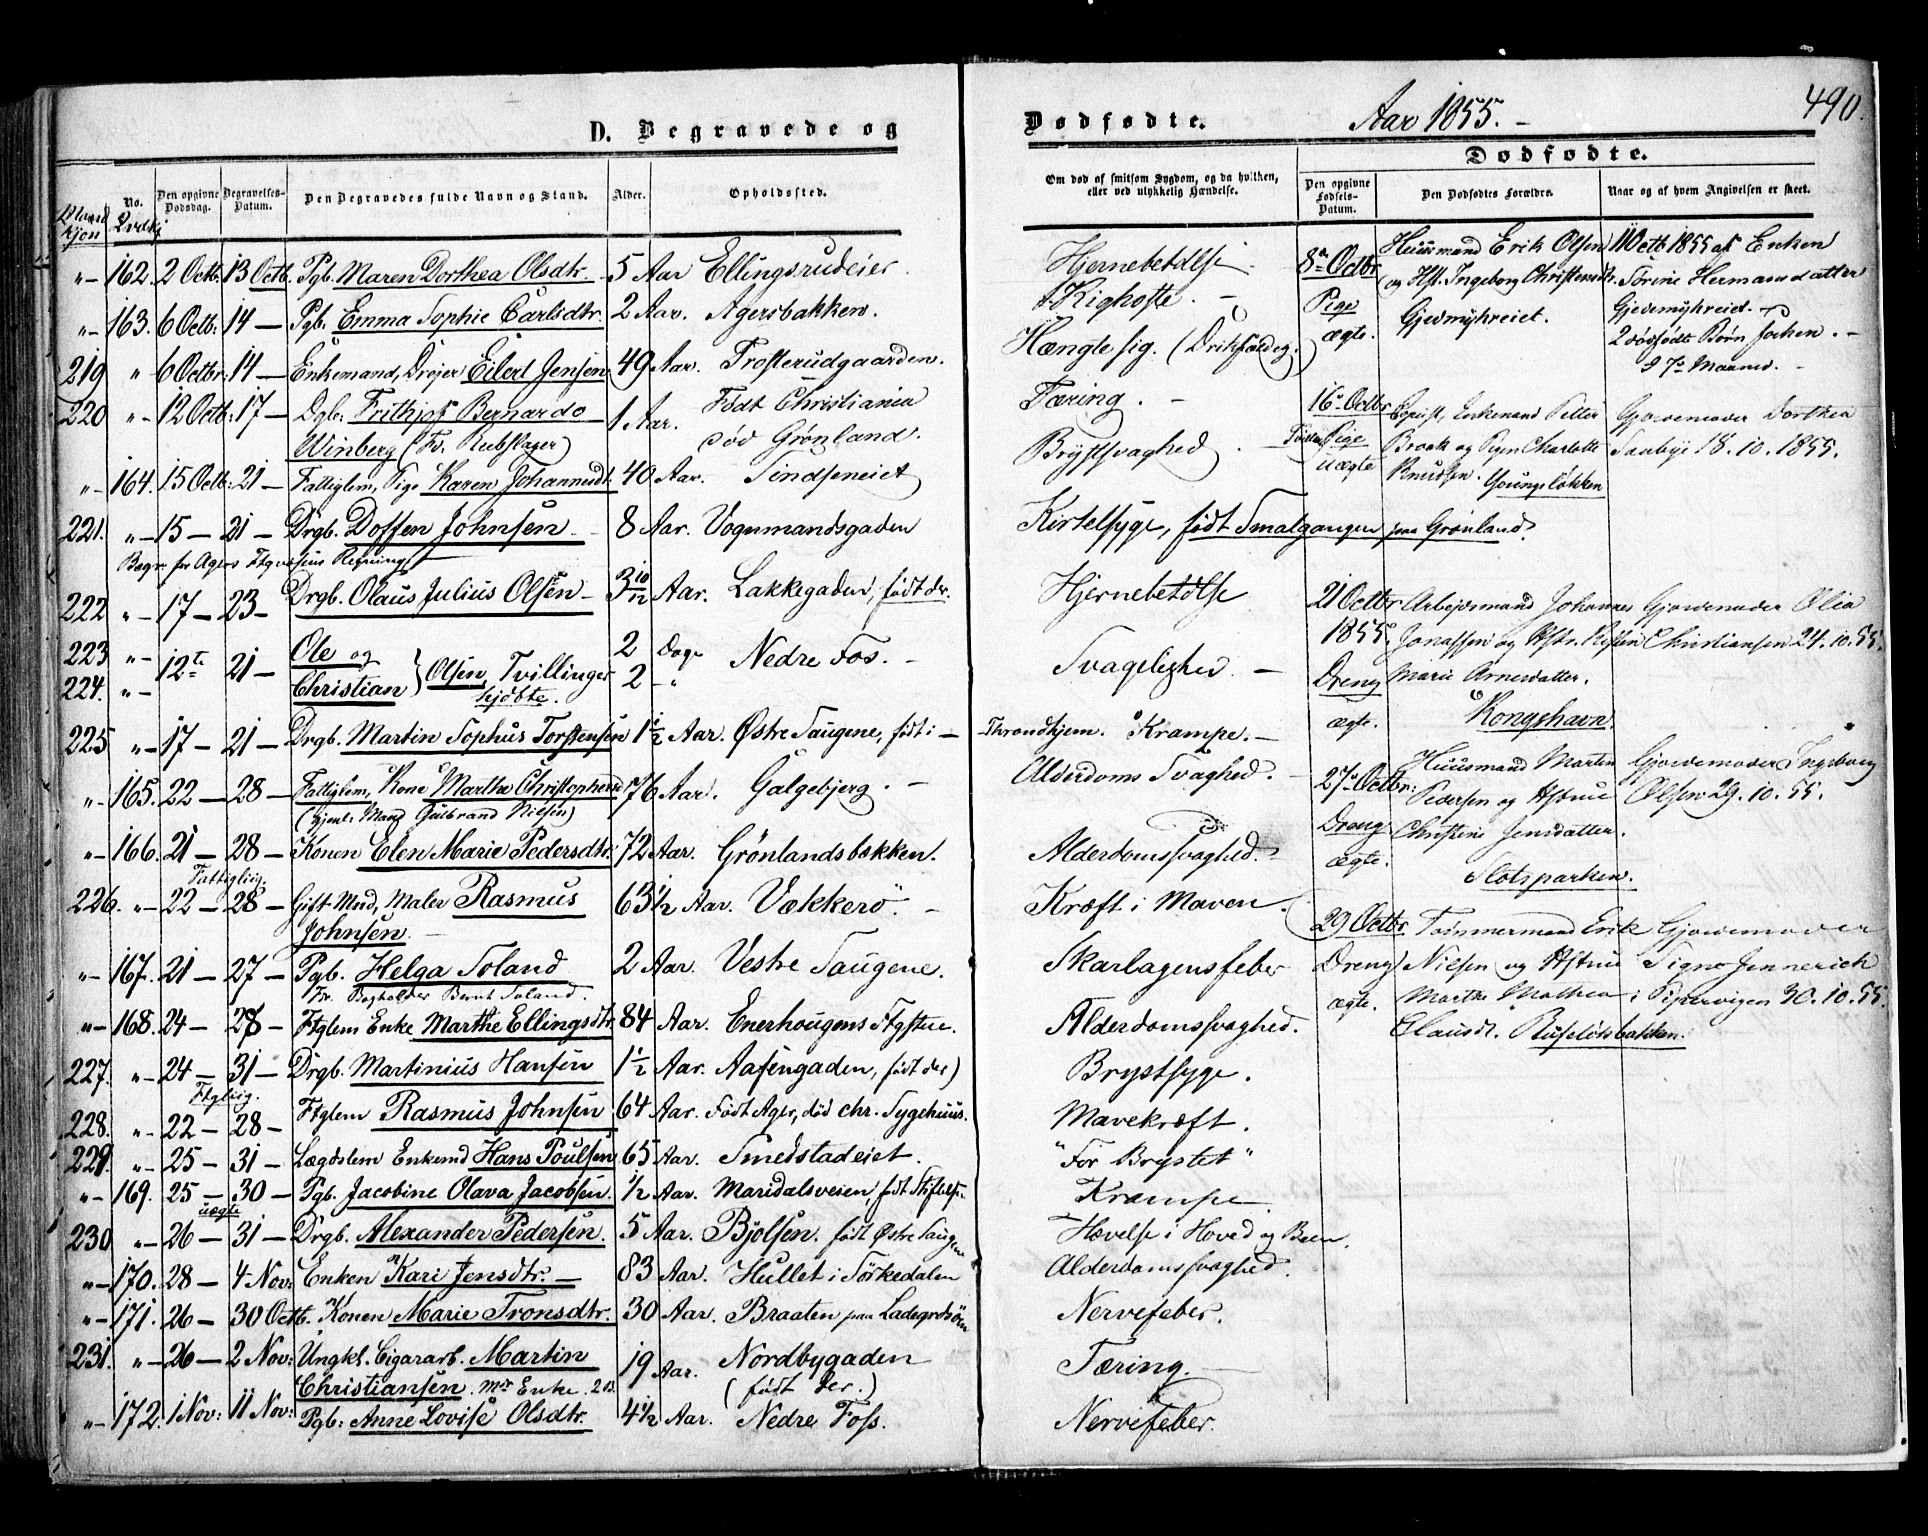 D. Begravede og
Dødfødte.
Aar 1855. –
490.
Dødfødte.
No.
Den opgivne Dødsdag.
Begravelses-Datum.
Den Begravedes fulde Navn og Stand.
Alder.
Opholdssted.
Om død af smitsom Sygdom, og da hvilken, eller ved ulykkelig Hændelse.
Den opgivne Fødsels-Datum.
Den Dødfødtes Forældre.
Naar og af hvem Angivelsen er skeet.
Mand kjøn Qvdkj
"– 162. 2 Octb. 13 Octb. Pgb. Maren Dorthea Olsdtr. 5 Aar Ellingsrudeier. Hjernebetdlse
"– 163. 6 Octb: 14 – Pgb. Emma Sophie Carlsdtr. 2 Aar. Agersbakken. Kighoste. –
219 " 6 Octbr. 14 – Enkemand, Drejer Eilert Jensen 49 Aar. Trosterudgaarden. Hængte sig. (Drikfældig.)
220 "– 12 Octb: 17 – Dgb: Frithjof Bernardo 1 Aar. Født Christiania Tæring. –
Winberg (Fr. Rebslager) død Grønland. Brystsvaghed
"– 164. 15 Octb: 21 – Fattiglem, Pige Karen Johannesdt. 40 Aar. Tindseneiet
221. "– 15 – 21 – Drgb. Doffen Johnsen. 8 Aar. Vognmandsgaden Kirtelsyge, født Smalgangen paa Grønland.
Begr. for Agers Regning
222 "– 17 – 23 – Drgb. Olaus Julius Olsen – 3 10/12 Aar. Lakkegaden, født der. Hjernebetdlse
223 "– 12te 21 – Ole og 2 Dage Nedre Fos. – Svagelighed –
224. "– Christian } Olsen, Tvillinger hjdøbte. 2 –"
225 "– 17 – 21 – Drgb. Martin Sophus Torstensen 1 1/2 Aar. Østre Saugene, født i – Throndhjem. Krampe. –
"– 165. 22 – 28 – Fattiglem, Kone Marthe Christophersd 76 Aar. Galgebjerg. – Alderdoms Svaghed. –
(Mand Gulbrand Nielsen)
"– 166. 21 – 28 – Konen Elen Marie Pedersdtr. 72 Aar. Grønlandsbakken. Alderdomssvaghed.
Fattiglig.
226. "– 22 – 28 – Gift Mnd, Maler Rasmus 63 1/2 Aar. Vækkerø. – Kræft i Maven.
Johnsen. –
"– 167. 21 – 27 – Pgb. Helga Soland 2 Aar. Vestre Saugene. Skarlagensfeber
Fr. Bogholder Bernt Soland.
"– 168. 24 – 28 – Ftglem Enke Marthe Ellingsdtr. 84 Aar. Enerhougens Ftgstue. Alderdomssvaghed.
227. "– 24 – 31 – Drgb. Martinius Hansen 1 1/2 Aar. Aasengaden, født der) Brystsyge.
Ftglig.
228. "– 22 – 28 – Ftglem Rasmus Johnsen 64 Aar. Født Ager, død chr. Sygehuus. Mavekræft.
229. "– 25 – 31 – Lægdslem Enkemd Hans Poulsen 65 Aar. Smedstadeiet. "For Brystet"
"– 169. 25 – 30 – Pgb. Jacobine Olava Jacobsen. 1/2 Aar. Maridalsveien, født Stiftelse. Krampe
uægte
230 "– 26 – 31 – Drgb. Alexander Pedersen. 5 Aar. Bjølsen. født Østre Saugene Hævelse i Hoved og Been.
"– 170. 28 – 4 Nov: Enken Kari Jensdtr. – 83 Aar. Hullet i Sørkedalen Alderdomssvaghed.
"– 171. 26 – 30 Octb. Konen Marie Tronsdtr. 30 Aar. Braaten paa Ladegrdsøen Nervefeber.
231. "– 26 – 2 Nov: Ungkl. Cigararb. Martin 19 Aar. Nordbygaden Tæring.
Christiansen. Mdr Enke. 2 B. (født der.)
"– 172. 1 Nov: 11 Nov: Pgb: Anne Lovise Olsdtr. 4 1/2 Aar. Nedre Foss. Nervefeber.
8de Octbr. Huusmand Erik Olsen 11 Octb 1855 af Enken
og Hst. Ingeborg Christensdtr. Sørine Hermansdatter
Pige Gjevmyhreiet. Gjevemyhreiet. –
ægte. 2 dødfødte Børn
7 Maaned. –
16 Octbr. Enkemand Petter Gjordemoder Dorthea
Pige Brock og Pigen Charlotte Sauby 18. 10. 1855.
uægte Knudsen. Youngsløkken
21 Octbr Arbejdsmand Johannes Gjordemoder Olia
1855. Jonassen og Hstr. Christiansen 24. 10. 55.
Dreng Marie Arnesdatter.
ægte. Kongshavn.
27 Octbr. Huusmand Martin Gjordemoder Ingeborg
Pedersen og Hstrue Olsen 29. 10. 55.
Dreng Christine Jensdatter.
ægte. Slotsparken.
29 Octbr. Tømmermand Erik Gjordemoder
Dreng Nielsen og Hstrue Signe Jennerich
ægte. Marthe Mathea i Pipervigen 30. 10. 55.
Clausdt. Ruseløkbakken.